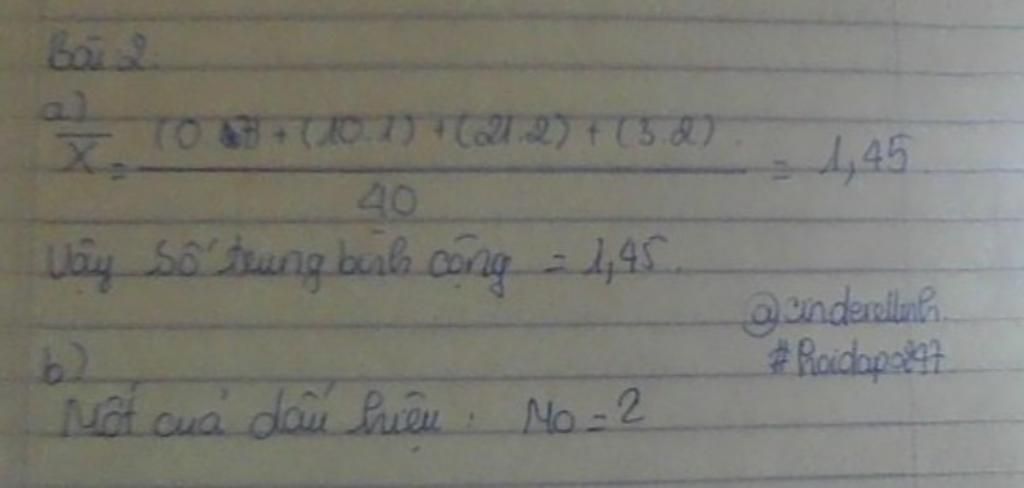 Bài 2.
a)
X̅ = (0.7) + (10.1) + (21.2) + (3.2) / 40 = 1,45.
Vậy số trung bình cộng = 1,45.
@cinderellinh.
b)
Mốt của dấu hiệu : Mo = 2